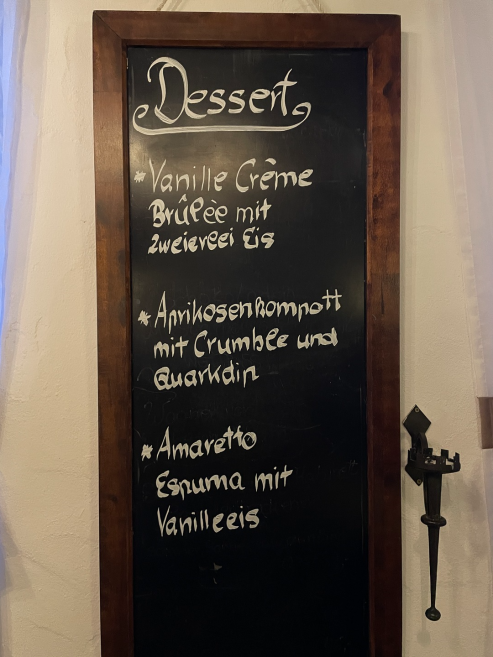 Dessert
* Vanille Crème
Brûlèe mit
zweierlei Eis
* Aprikosenkompott
mit Crumble und
Quarkdip
* Amaretto
Espuma mit
Vanilleeis